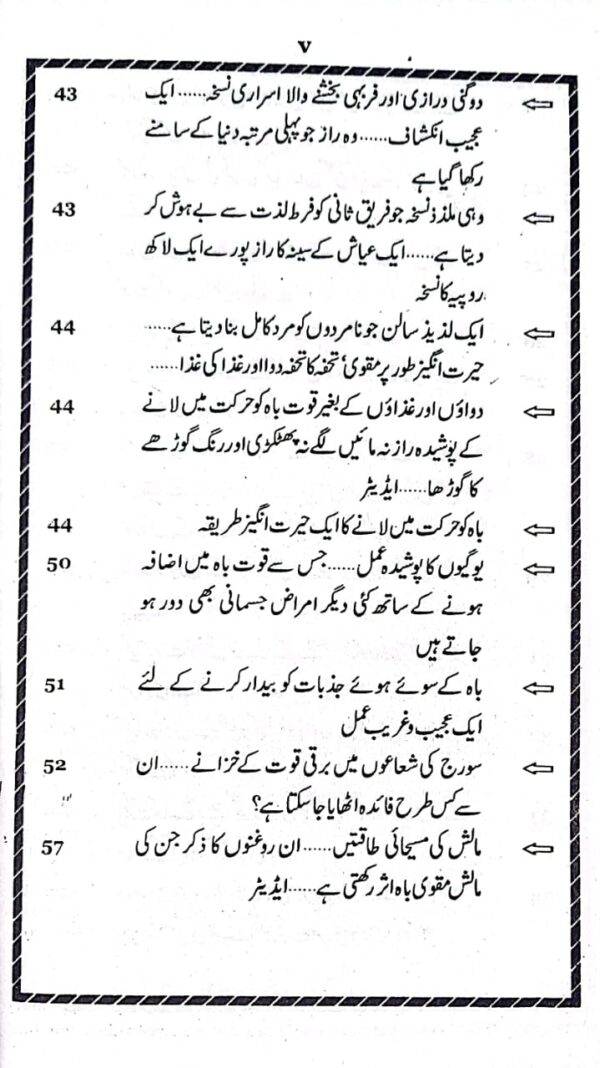 ۷
⇦ دوگنی درازی اور فربہی بخشنے والا اسراری نسخہ……ایک 43
عجیب انکشاف……وہ راز جو پہلی مرتبہ دنیا کے سامنے
رکھا گیا ہے
⇦ وہی ملذذ نسخہ جو فریق ثانی کو فرط لذت سے بے ہوش کر 43
دیتا ہے……ایک عیاش کے سینہ کا راز پورے ایک لاکھ
روپیہ کا نسخہ
⇦ ایک لذیذ سالن جو نامردوں کو مرد کامل بنا دیتا ہے…… 44
حیرت انگیز طور پر مقوی‘ تحفہ کا تحفہ دوا اور غذا کی غذا……
⇦ دواؤں اور غذاؤں کے بغیر قوت باہ کو حرکت میں لانے 44
کے پوشیدہ راز نہ مائیں لگے نہ پھٹکڑی اور رنگ گوڑھے
کا گوڑھا……ایڈیٹر
⇦ باہ کو حرکت میں لانے کا ایک حیرت انگیز طریقہ 44
⇦ یوگیوں کا پوشیدہ عمل……جس سے قوت باہ میں اضافہ 50
ہونے کے ساتھ کئی دیگر امراض جسمانی بھی دور ہو
جاتے ہیں
⇦ باہ کے سوئے ہوئے جذبات کو بیدار کرنے کے لئے 51
ایک عجیب و غریب عمل
⇦ سورج کی شعاعوں میں برقی قوت کے خزانے……ان 52
سے کس طرح فائدہ اٹھایا جا سکتا ہے؟
⇦ مالش کی مسیحائی طاقتیں……ان روغنوں کا ذکر جن کی 57
مالش مقوی باہ اثر رکھتی ہے……ایڈیٹر